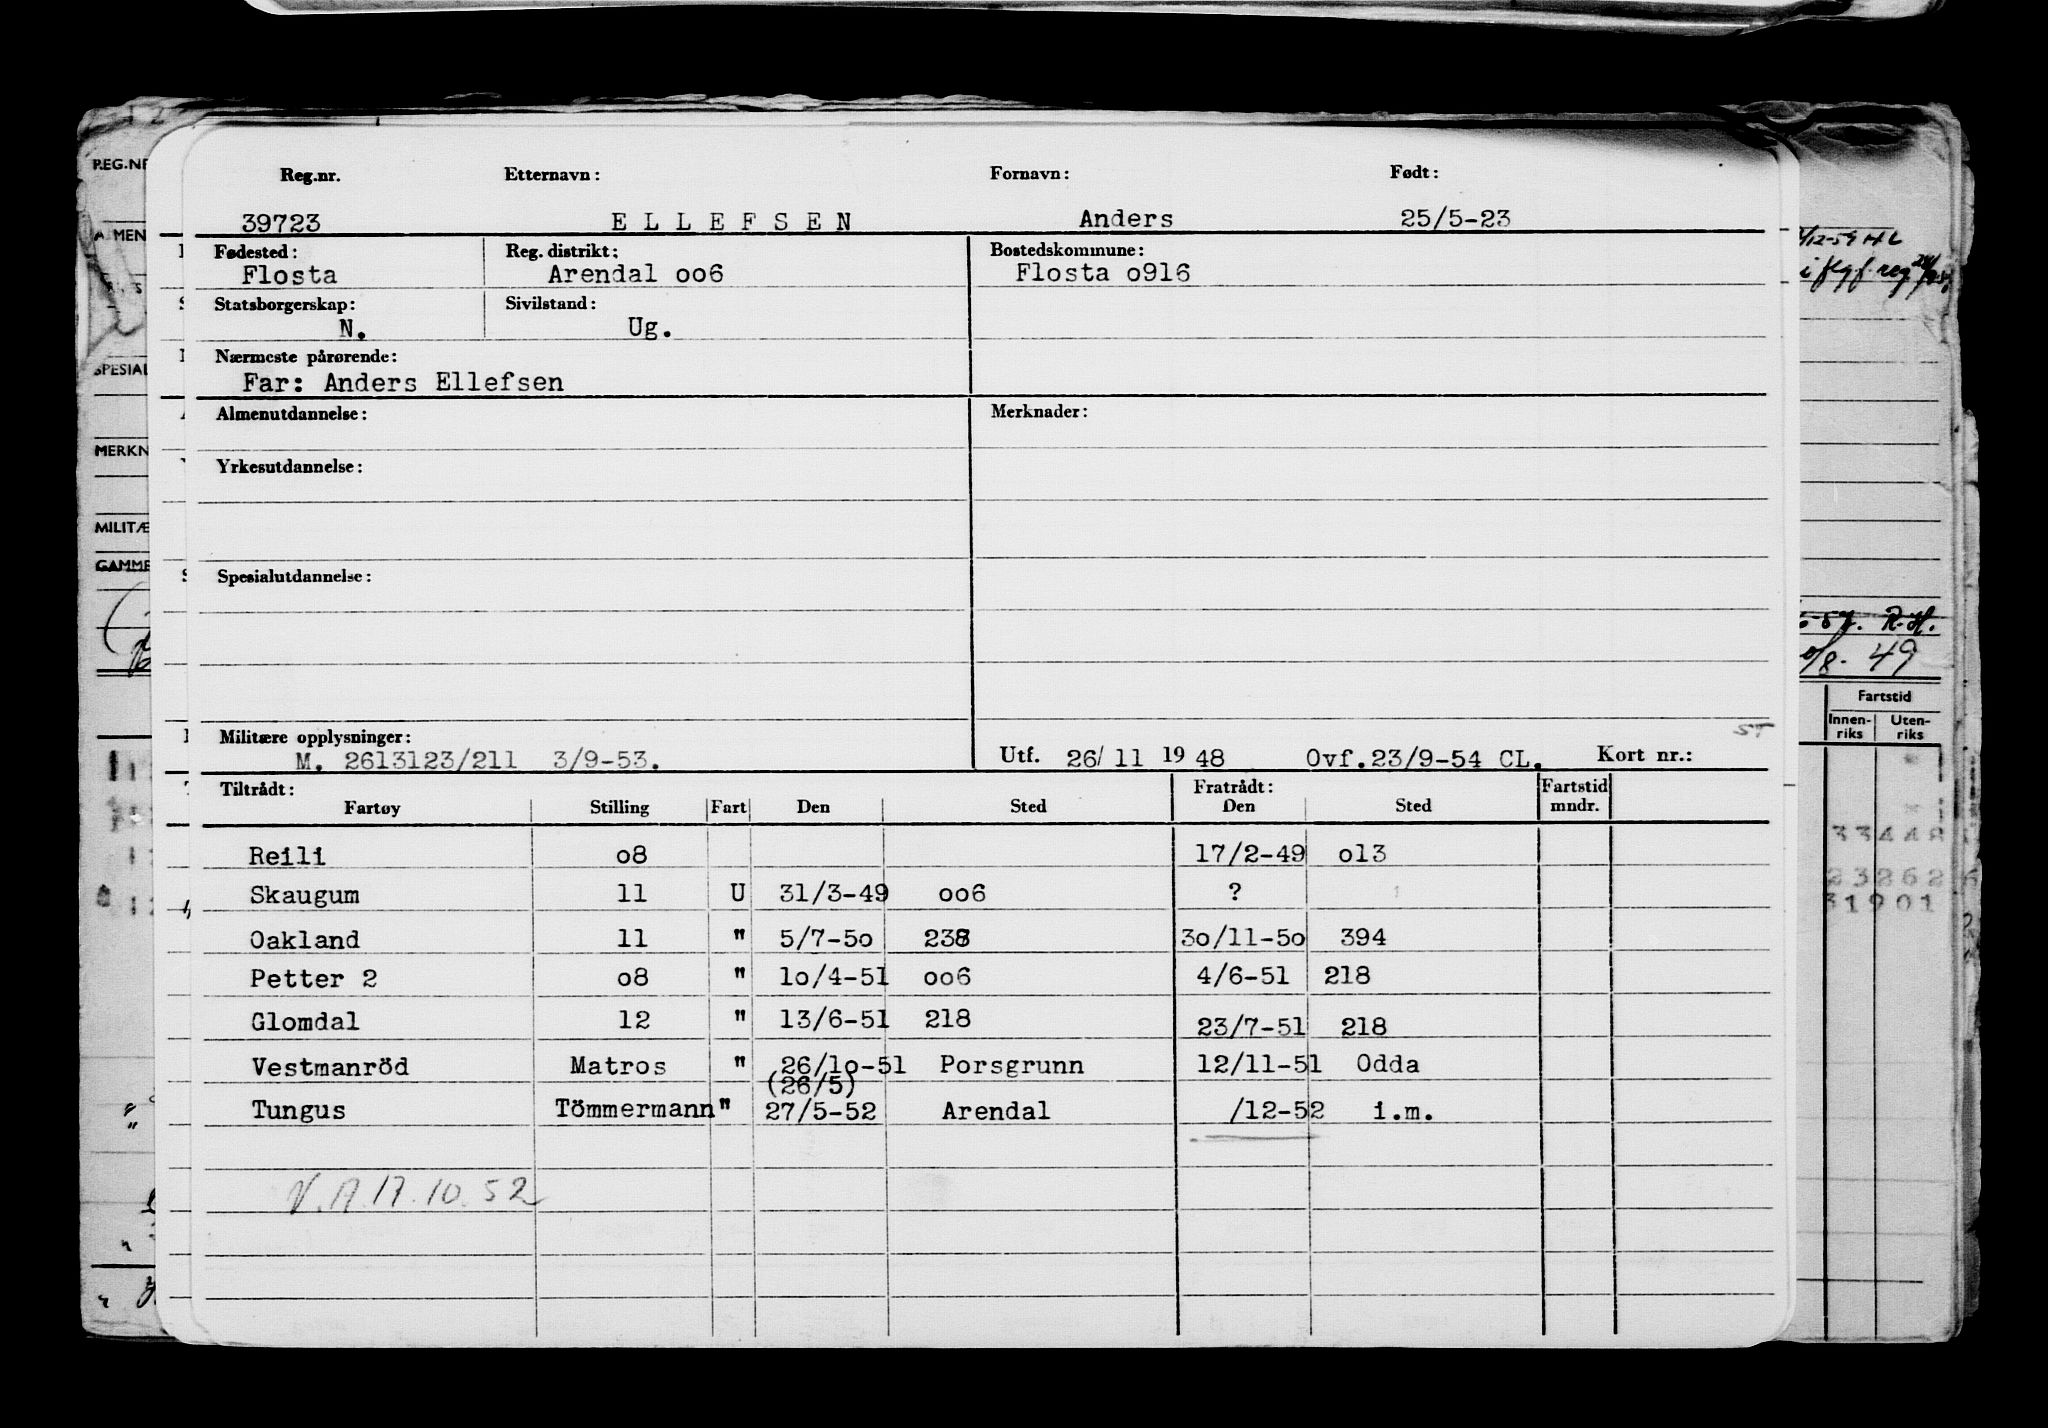 Reg.nr. Etternavn: Fornavn: Født:
39723 ELLEFSEN Anders 25/5-23
Fødested: Reg. distrikt: Bostedskommune:
Flosta Arendal oo6 Flosta o916
Statsborgerskap: Sivilstand:
N. Ug.
Nærmeste pårørende:
Far: Anders Ellefsen
Almenutdannelse: Merknader:
Yrkesutdannelse:
Spesialutdannelse:
Militære opplysninger:
M. 2613123/211 3/9-53. Utf. 26/11 19 48 Ovf.23/9-54 CL. Kort nr.: ST
Tiltrådt: Fratrådt: Fartstid
Fartøy Stilling Fart Den Sted Den Sted mndr.
Reili o8 17/2-49 o13
Skaugum 11 U 31/3-49 oo6 ?
Oakland 11 " 5/7-5o 238 3o/11-5o 394
Petter 2 o8 " 1o/4-51 oo6 4/6-51 218
Glomdal 12 " 13/6-51 218 23/7-51 218
Vestmanröd Matros " 26/1o-51 Porsgrunn 12/11-51 Odda
(26/5)
Tungus Tömmermann " 27/5-52 Arendal /12-52 i.m.
V.A 17.10.52
REG.NR
SPESIAL
MERKN
MILITÆ
GAMME
R.H.
/8. 49
Fartstid
Innen-riks Uten-riks
33448
23262
31901